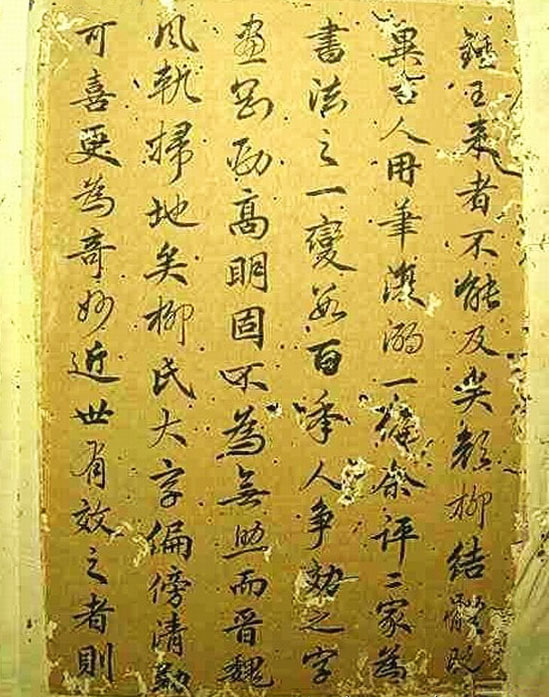 鍾王來者不能及矣顏柳結既
異古人用筆復溺一偏余評二家為
書法之一變數百年人爭効之字
畫剛勁高明固不為無助而晉魏
風軌掃地矣柳氏大字偏傍清勁
可喜更為奇妙近世有效之者則